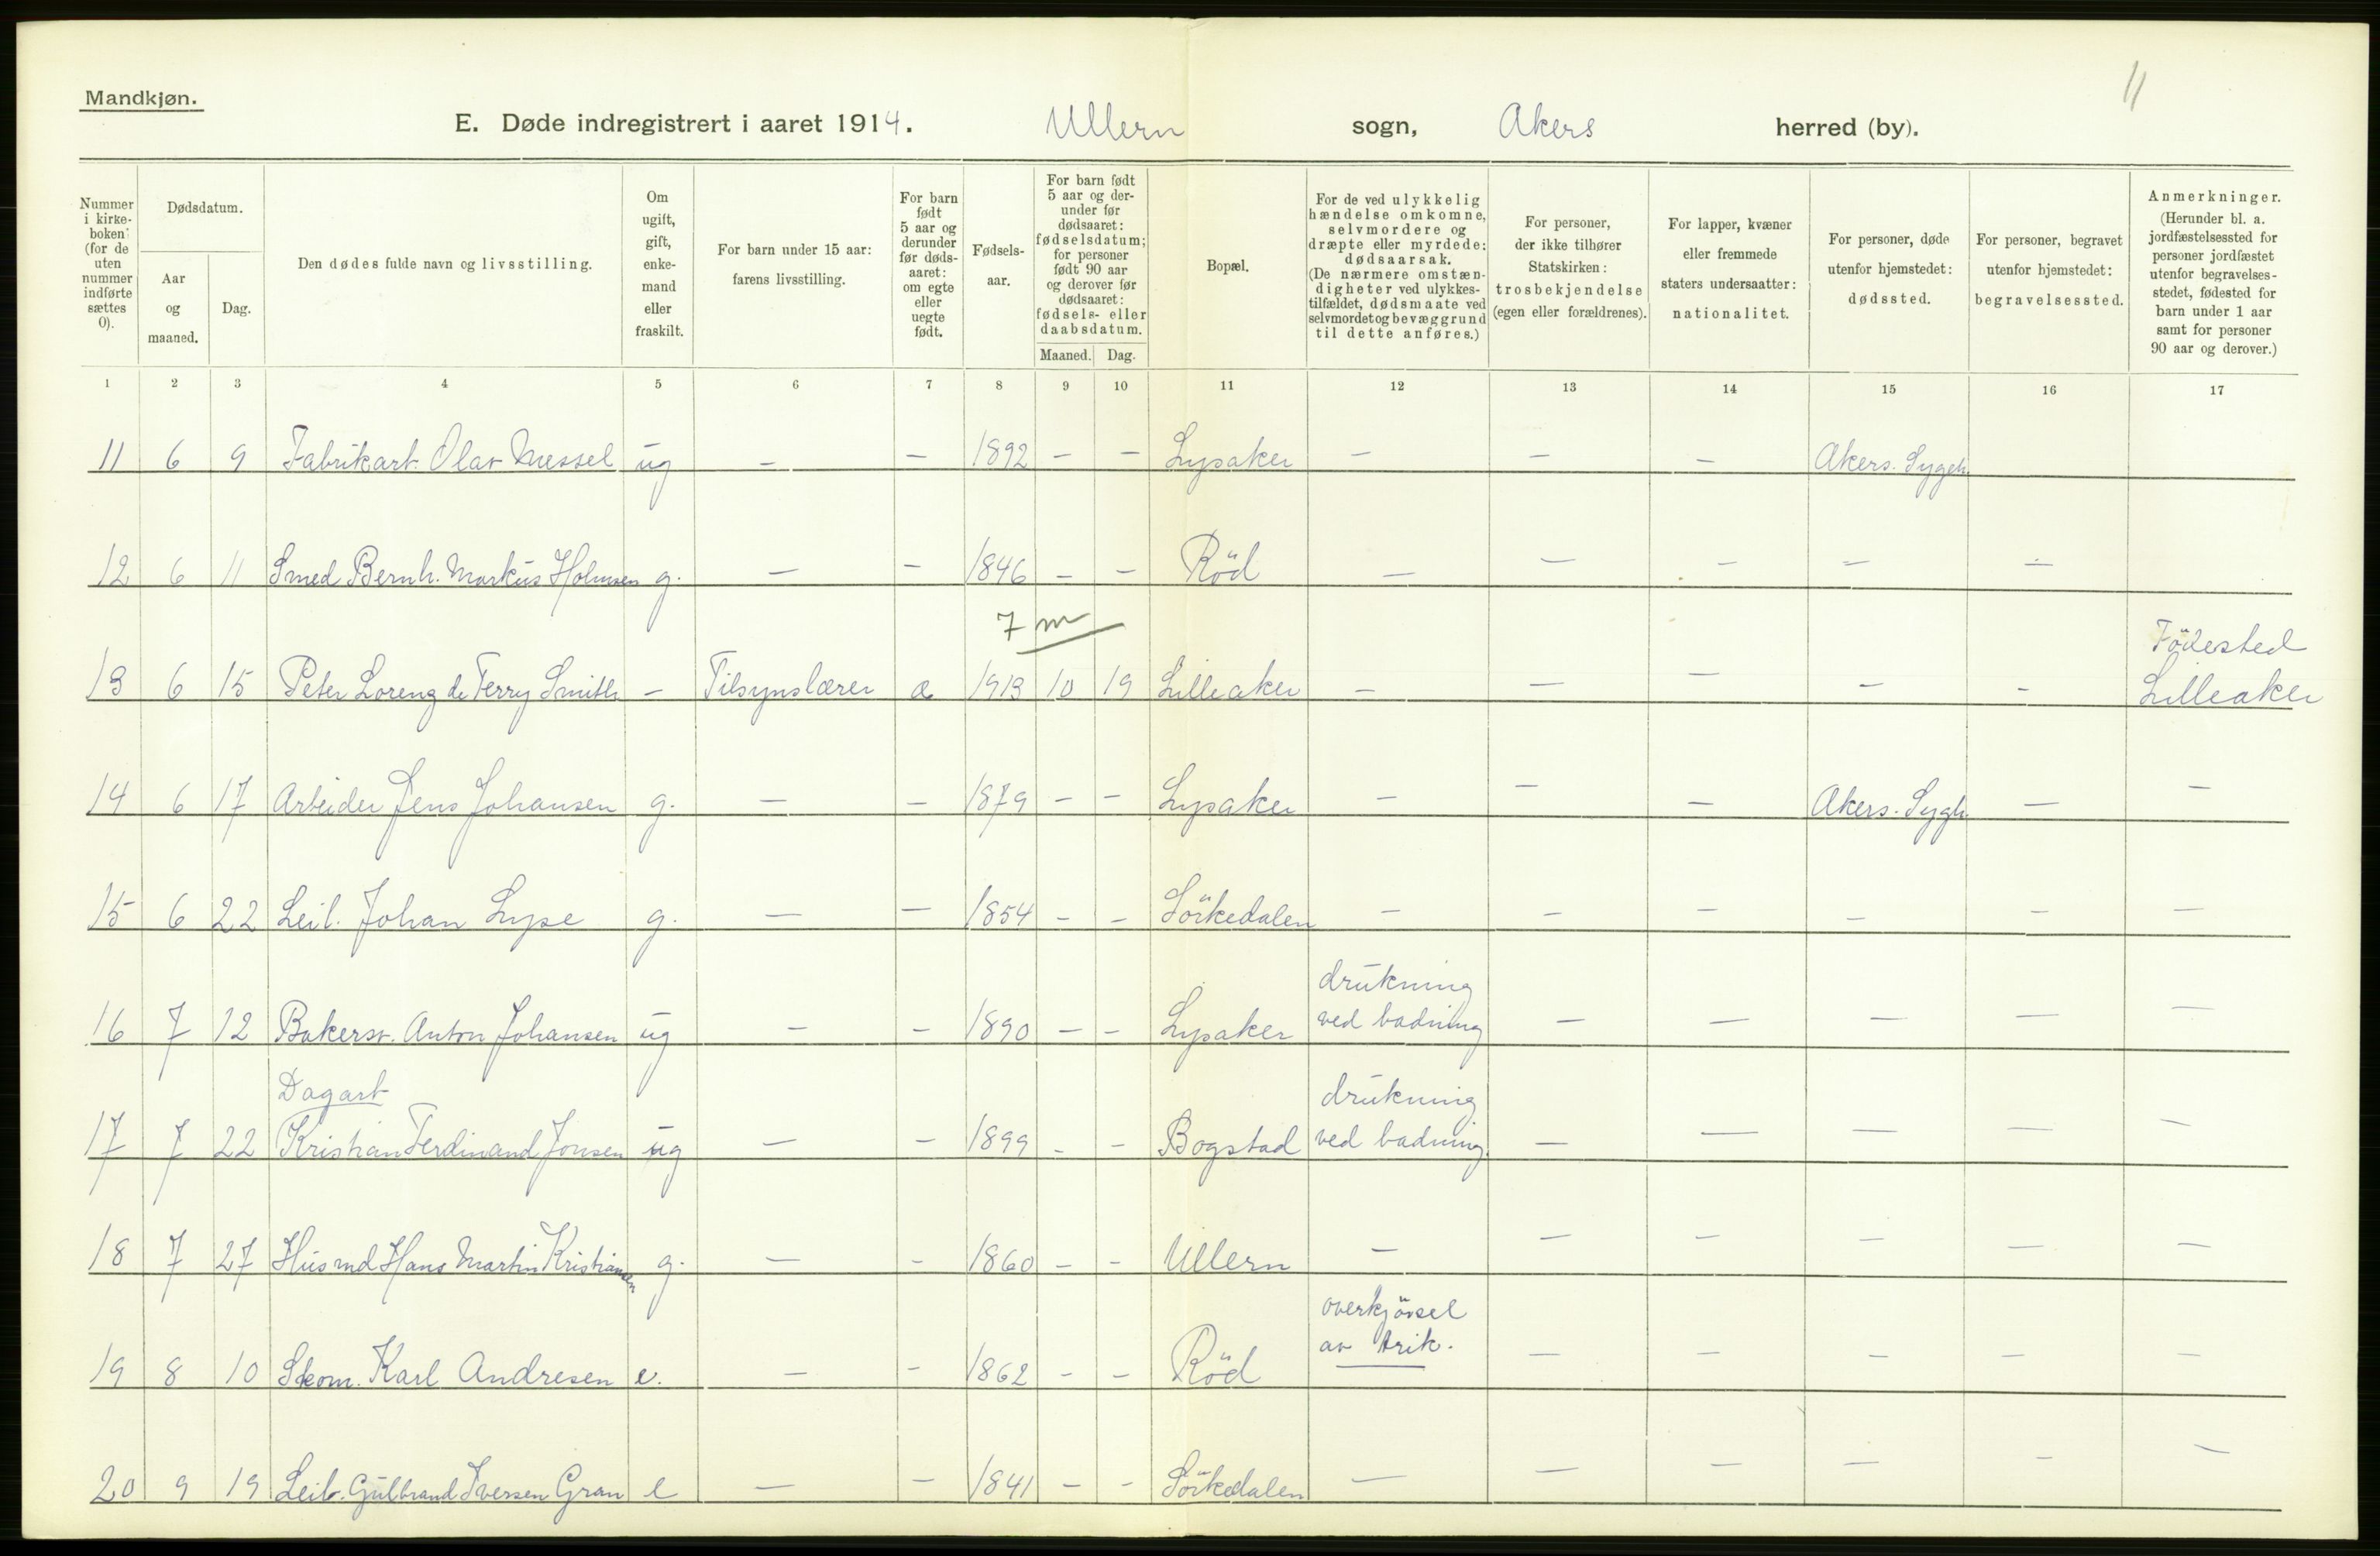 11
Mandkjøn.
E. Døde indregistrert i aaret 1914. Ullern sogn, Akers herred (by).
Nummer i kirke- boken (for de uten nummer indførte sættes 0).
Dødsdatum.
Aar og maaned.
Dag.
Den dødes fulde navn og livsstilling.
Om ugift, gift, enke- mand eller fraskilt.
For barn under 15 aar: farens livsstilling.
For barn født 5 aar og derunder før døds- aaret: om egte eller uegte født.
Fødsels- aar.
For barn født 5 aar og der- under før dødsaaret: fødselsdatum; for personer født 90 aar og derover før dødsaaret: fødsels- eller daabsdatum.
Maaned. Dag.
Bopæl.
For de ved ulykkelig hændelse omkomne, selvmordere og dræpte eller myrdede: dødsaarsak. (De nærmere omstæn- digheter ved ulykkes- tilfældet, dødsmaate ved selvmordet og bevæggrund til dette anføres.)
For personer, der ikke tilhører Statskirken: trosbekjendelse (egen eller forældrenes).
For lapper, kvæner eller fremmede staters undersaatter: nationalitet.
For personer, døde utenfor hjemstedet: dødssted.
For personer, begravet utenfor hjemstedet: begravelsessted.
Anmerkninger. (Herunder bl. a. jordfæstelsessted for personer jordfæstet utenfor begravelses- stedet, fødested for barn under 1 aar samt for personer 90 aar og derover.)
1 2 3 4 5 6 7 8 9 10 11 12 13 14 15 16 17
11 6 9 Fabrikarb. Olav Messel ug — — 1892 — — Lysaker — — — Akers. Sygeh.
12 6 11 Smed Bernh. Markus Holmsen g. — — 1846 — — Röd — — — — —
7 m
13 6 15 Peter Lorenz de Ferry Smith — Tilsynslærer æ 1913 10 19 Lilleaker — — — — — Födested
Lilleaker
14 6 17 Arbeider Jens Johansen g. — — 1879 — — Lysaker — — — Akers. Sygh. — —
15 6 22 Leil. Johan Lyse g. — — 1854 — — Sörkedalen — — — — — —
drukning
16 7 12 Bakersv. Anton Johansen ug — — 1890 — — Lysaker ved badning — — — — —
Dagarb drukning
17 7 22 Kristian Ferdinand Jonsen ug — — 1899 — — Bogstad ved badning. — — — — —
18 7 27 Husmd Hans Martin Kristiansen g. — — 1860 — — Ullern — — — — — —
overkjörsel
av trik.
19 8 10 Skom. Karl Andresen e. — — 1862 — — Röd — — — — —
20 9 19 Leil. Gulbrand Iversen Gran e — — 1841 — — Sörkedalen — — — — — —